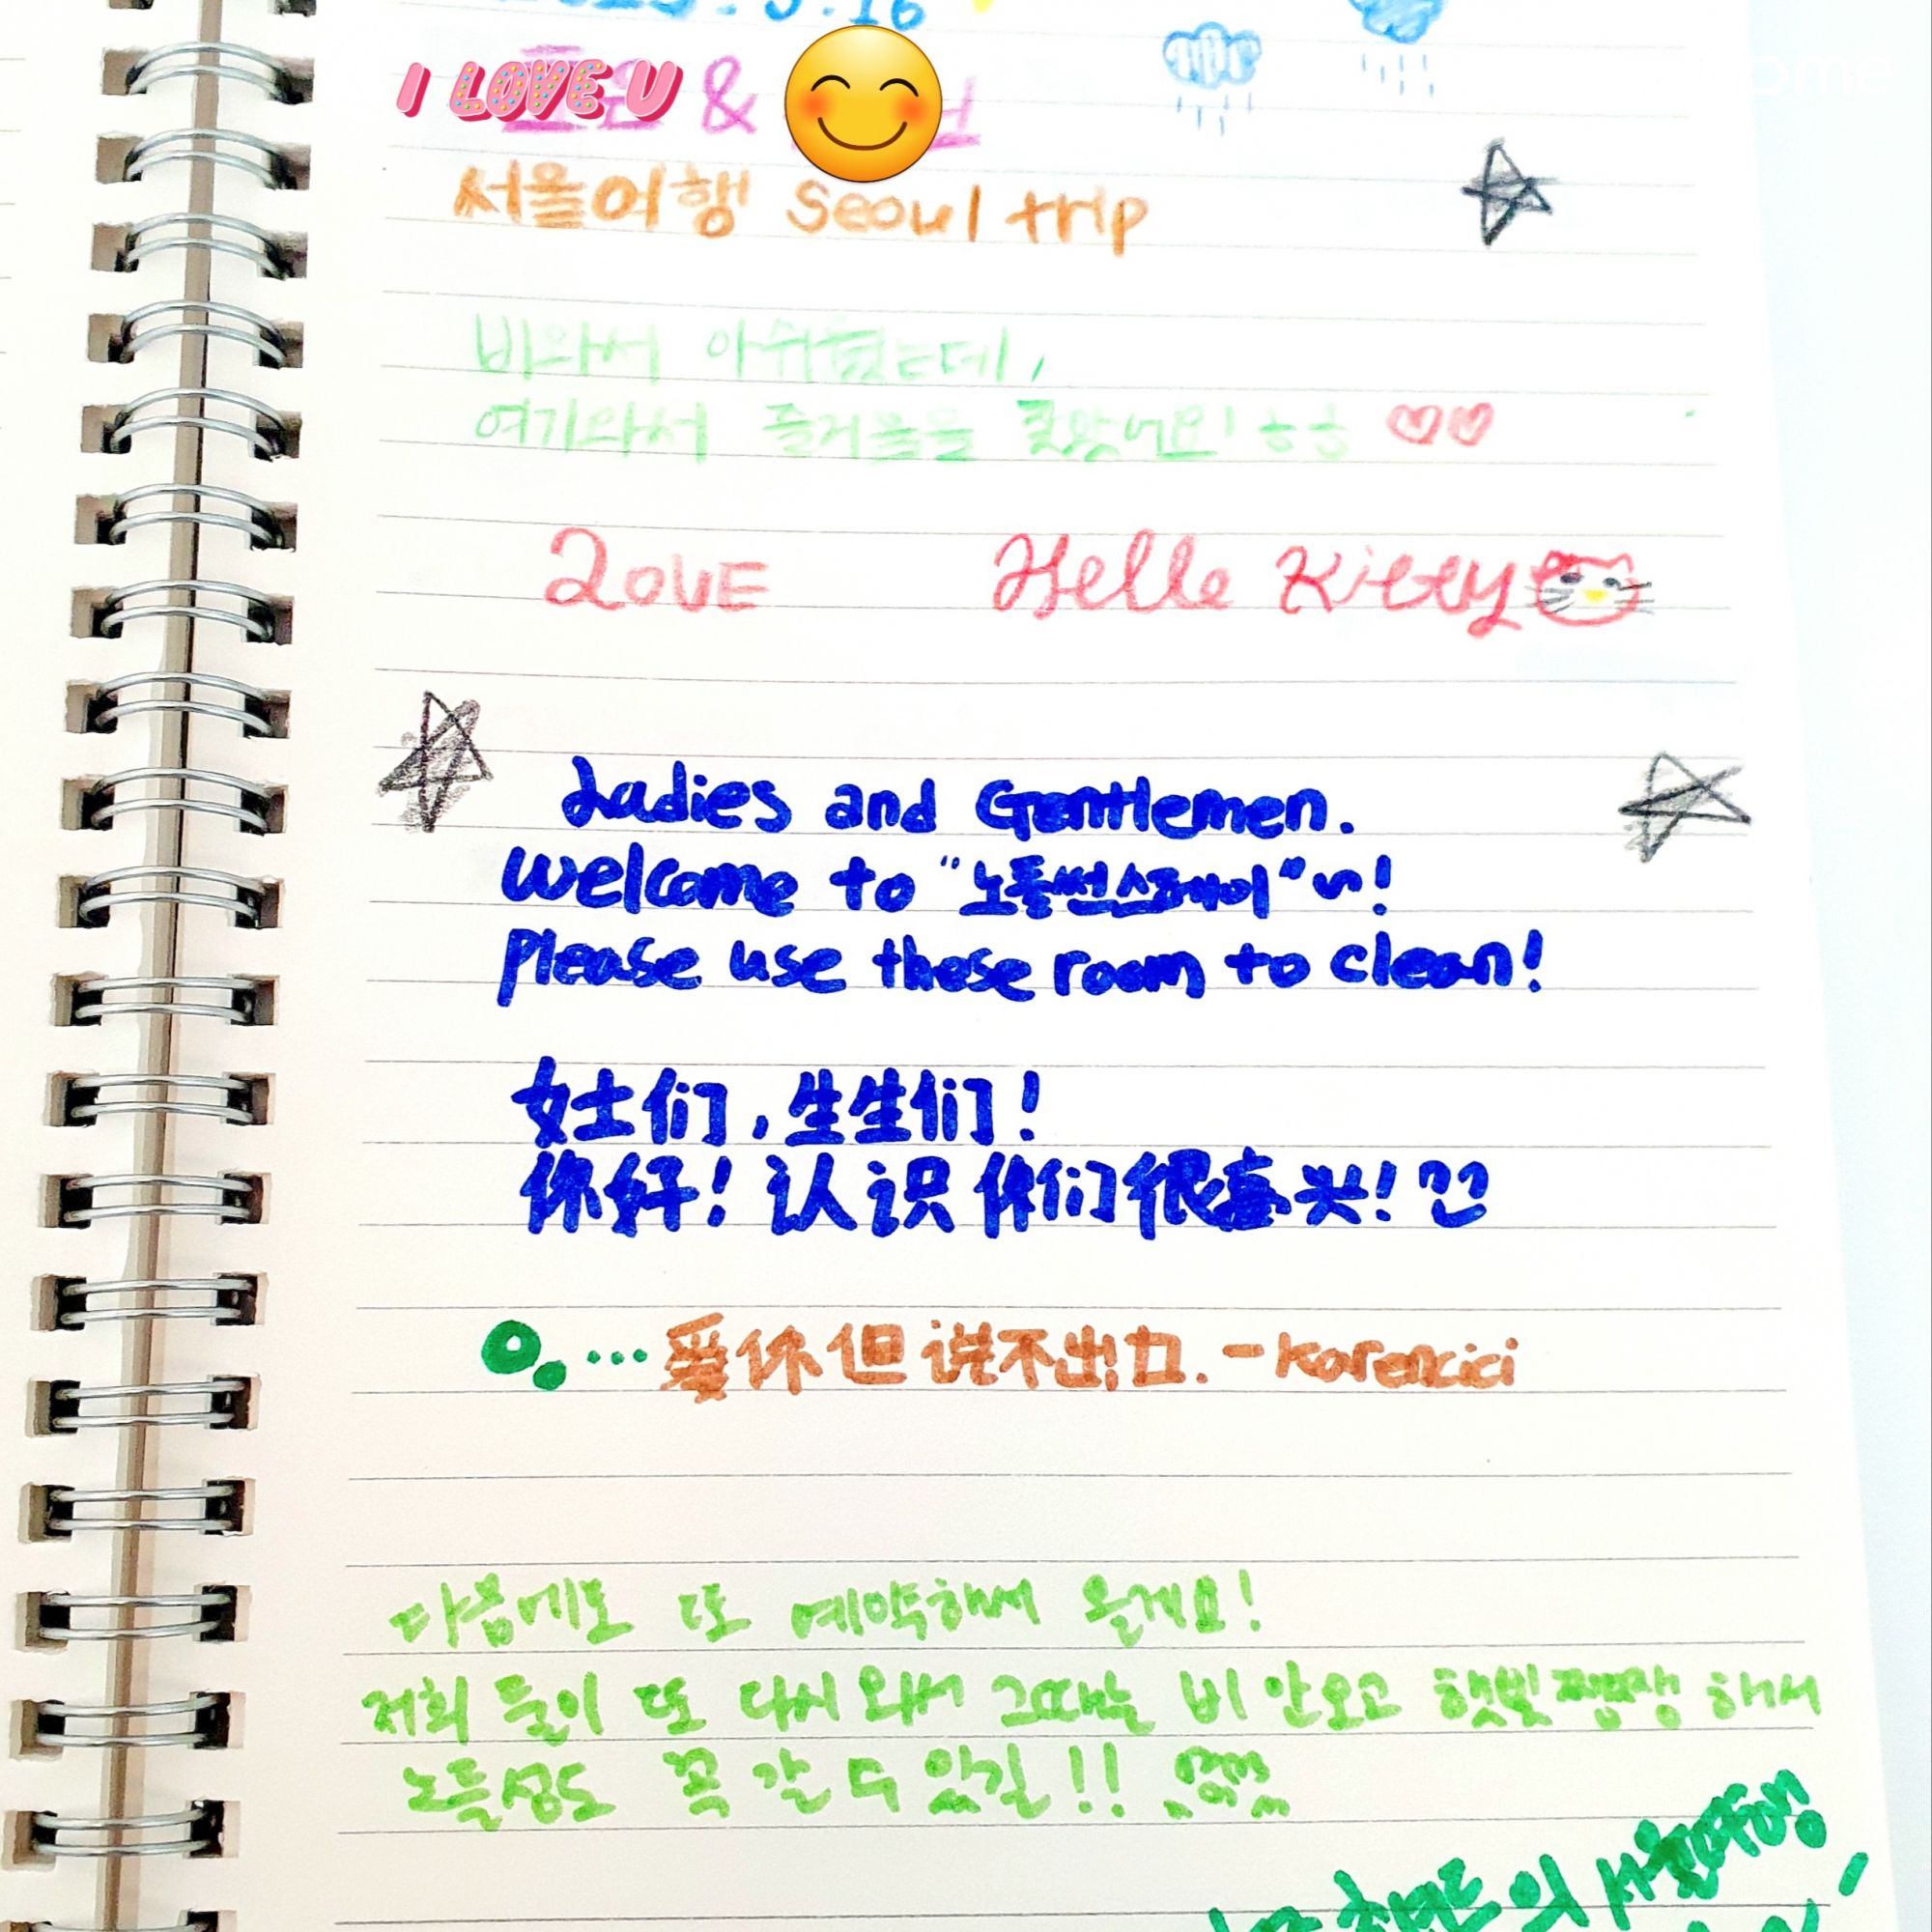 I LOVE U &
서울여행 Seoul trip
비와서 아쉬웠는데,
여기와서 즐거움을 찾았어요! ㅎㅎ ♡♡
LOVE Hello Kitty
Ladies and Gentlemen.
Welcome to "노들썬스테이"~!
Please use these room to clean!
女士们,生生们!
你好! 认识你们很喜兴!
...爱你但说不出口. - Karencici
다음에도 또 예약해서 올게요!
저희 둘이 또 다시 와서 그때는 비 안오고 햇빛쨍쨍 해서
노들섬도 꼭 갈 수 있길!!
의 서울여행